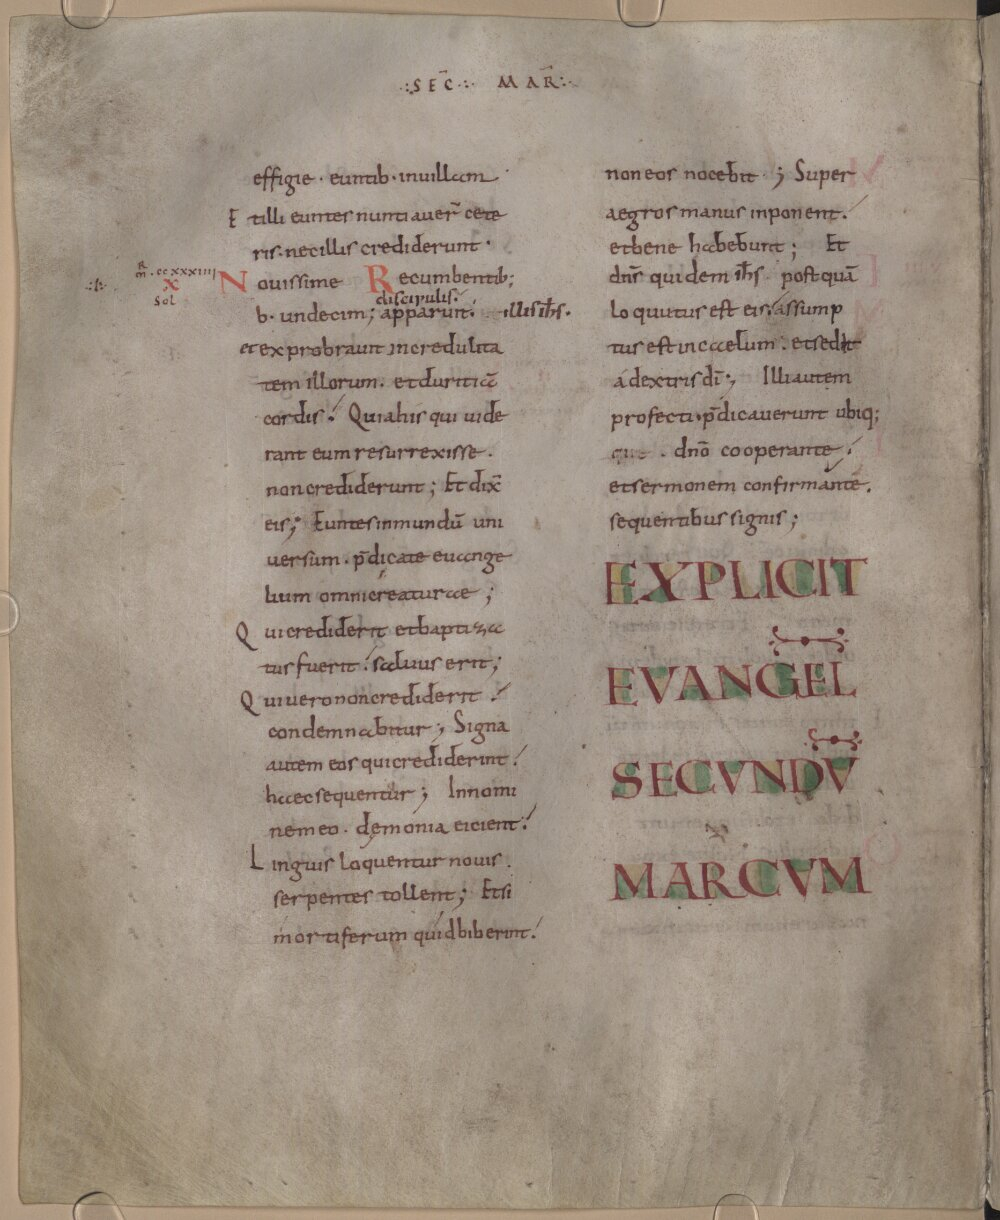 :SEC̄: MAR̄:
effigie · euntib· inuillam
Et illi euntes nuntiauer̄ cete
ris· nec illis crediderunt·
R
m̄ · ccxxxiiii
x
Sol
·:l·:
Nouissime Recumbentib;
discipulis·
b· undecim; apparuit· illis ih̄s·
et exprobrauit incredulita
tem illorum· et duritiā
cordis! Quia his qui uide
rant eum resurrexisse·
non crediderunt; Et dix̄
eis; Euntes in mundū uni
uersum· p̄dicate euange
lium omni creaturae;
Qui crediderit et baptiza
tus fuerit! saluus erit;
Qui uero non crediderit!
condemnabitur; Signa
autem eos qui crediderint!
haec sequentur; In nomi
ne meo· demonia eicient!
Linguis loquentur nouis·
serpentes tollent; Et si
mortiferum quid biberint!
non eos nocebit ; Super
aegros manus inponent!
et bene habebunt; Et
dn̄s quidem ih̄s postquā
locutus est eis! assump
tus est in caelum· et sedit
a dextris dī; Illi autem
profecti· p̄dicauerunt ubiq;
que · dn̄o cooperante!
et sermonem confirmante·
sequentibus signis;
EXPLICIT
EVANGEL
SECVNDV
MARCVM